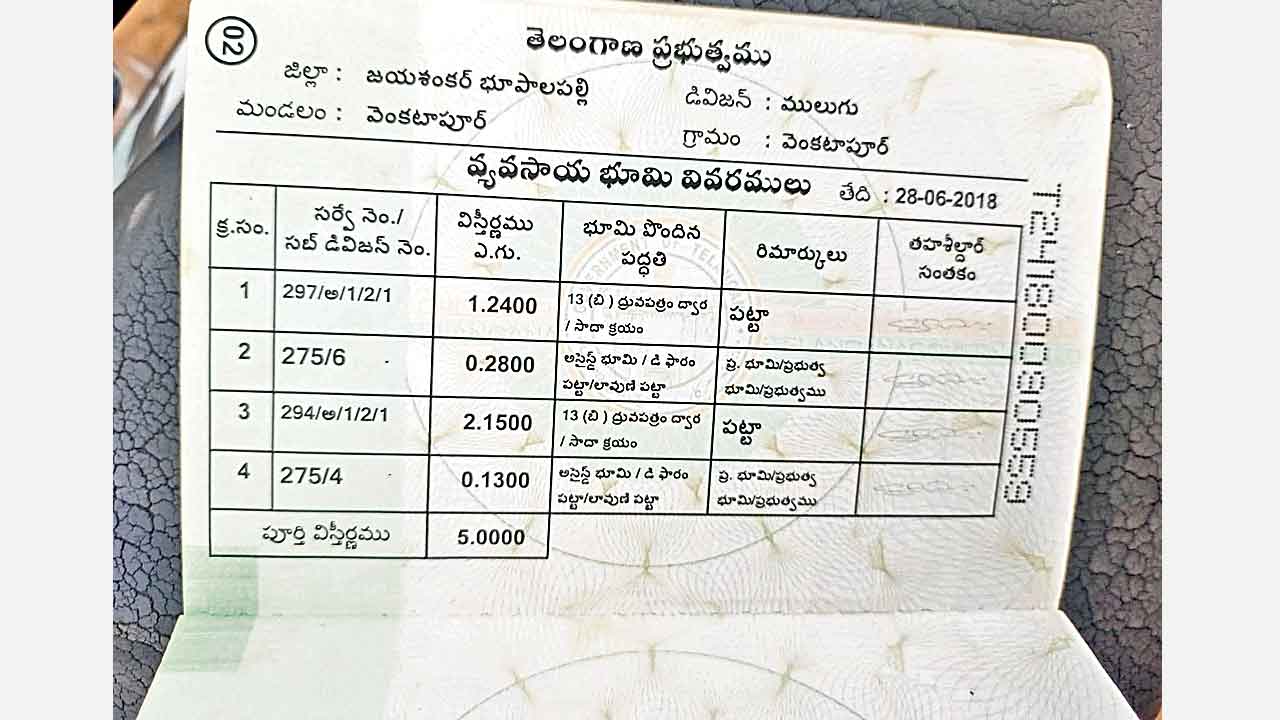 02
తెలంగాణ ప్రభుత్వము
జిల్లా : జయశంకర్ భూపాలపల్లి డివిజన్ : ములుగు
మండలం : వెంకటాపూర్ గ్రామం : వెంకటాపూర్
వ్యవసాయ భూమి వివరములు తేది : 28-06-2018
క్ర.సం. సర్వే నెం./ సబ్ డివిజన్ నెం. విస్తీర్ణము ఎ.గు. భూమి పొందిన పద్ధతి రిమార్కులు తహశీల్దార్ సంతకం
1 297/అ/1/2/1 1.2400 13 (బి ) ధ్రువపత్రం ద్వార / సాదా క్రయం పట్టా
2 275/6 0.2800 అసైన్డ్ భూమి / డి ఫారం పట్టా/లావుణి పట్టా ప్ర. భూమి/ప్రభుత్వ భూమి/ప్రభుత్వము
3 294/అ/1/2/1 2.1500 13 (బి ) ధ్రువపత్రం ద్వార / సాదా క్రయం పట్టా
4 275/4 0.1300 అసైన్డ్ భూమి / డి ఫారం పట్టా/లావుణి పట్టా ప్ర. భూమి/ప్రభుత్వ భూమి/ప్రభుత్వము
పూర్తి విస్తీర్ణము 5.0000